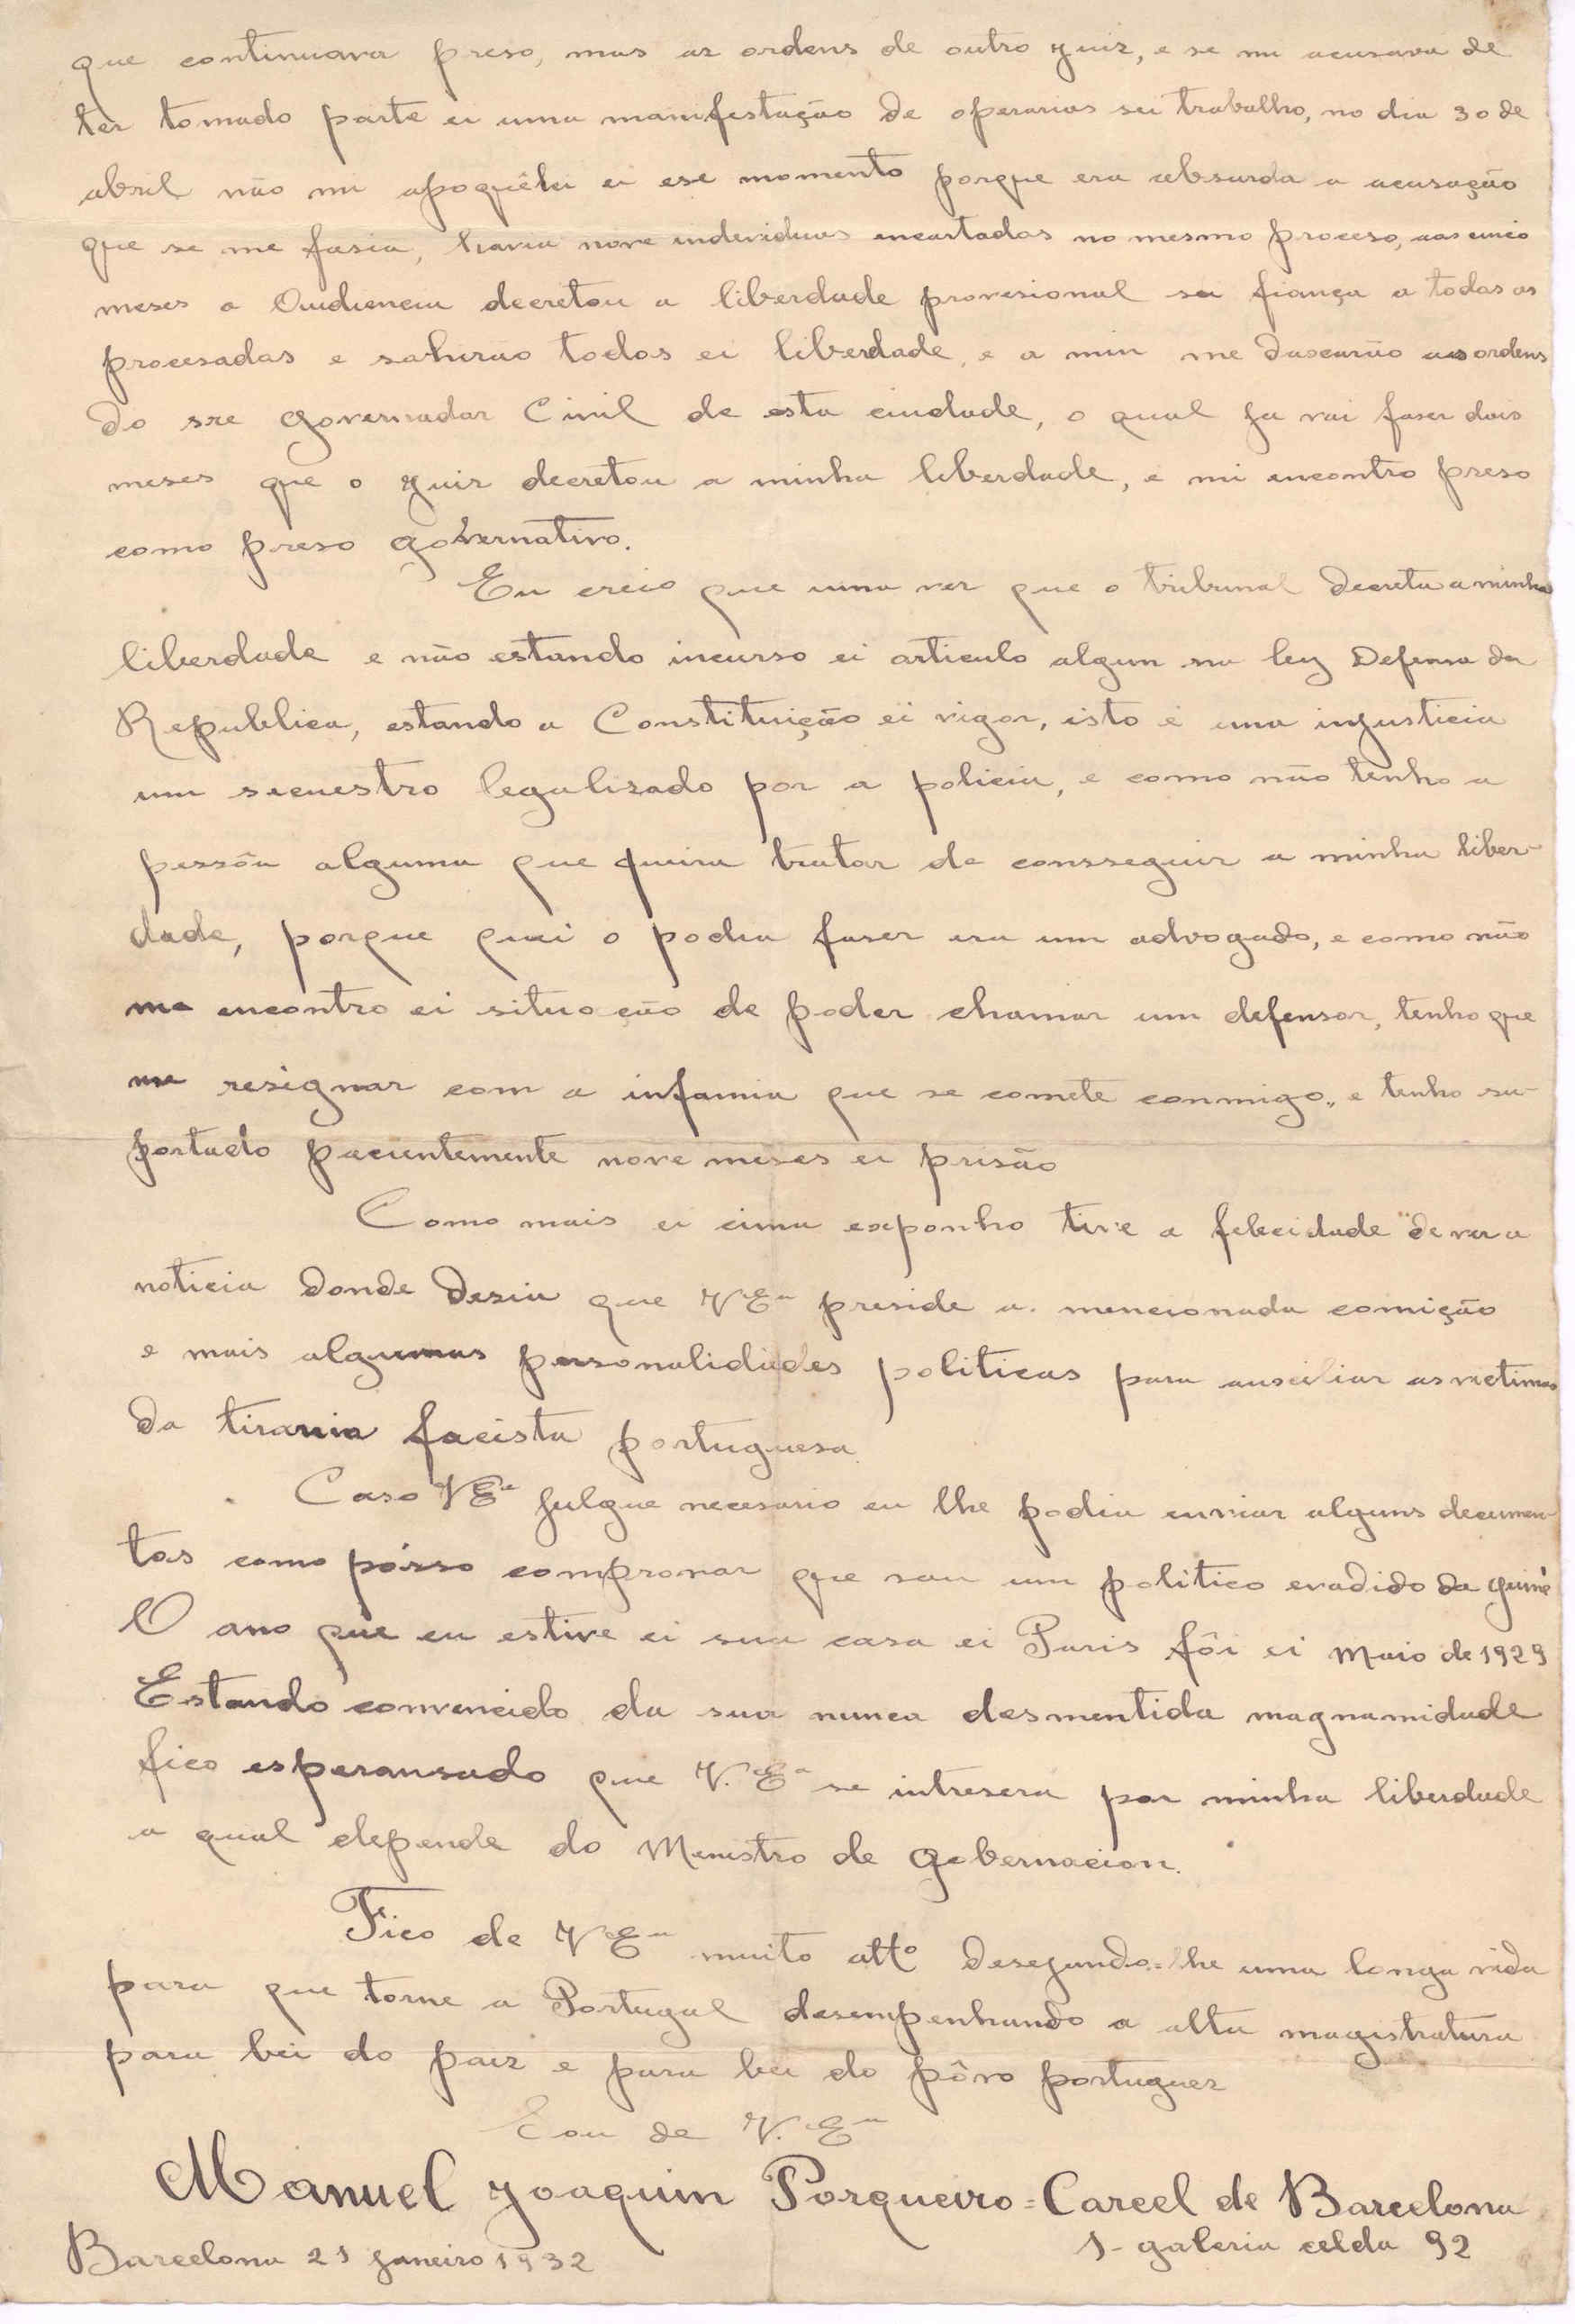 que continuava preso, mas as ordens de outro juiz, e se mi acusava de
ter tomado parte ei uma manifestação de operarios sei trabalho, no dia 30 de
abril não mi apoquêtei ei ese momento porque era absurda a acusação
que se me fasia, havia nove individuos encartados no mesmo proceso, aos cinco
meses a Oudiencia decretou a liberdade provesional sei fiança a todos os
procesados e sahirão todos ei liberdade, e a min me daxarão as ordens
do sre Governador Civil de esta ciudade, o qual ja vai faser dois
meses que o juiz decretou a minha liberdade, e mi encontro preso
como preso governativo.
Eu creio que uma vez que o tribunal decreta a minha
liberdade e não estando incurso ei articulo algun na ley Defensa da
Republica, estando a Constituição ei vigor, isto é uma injusticia
um secuestro legalisado por a policia, e como não tenho a
pessôa alguma que queira tratar de consseguir a minha liber-
dade, porque quei o podia faser era um advogado, e como não
me encontro ei situação de poder chamar um defensor, tenho que
me resignar com a infamia que se comete conmigo, e tenho su-
portado pacientemente nove meses ei prisão
Como mais ei cima exponho tive a felecidade de ver a
noticia donde desia que V Eª preside a mencionada comição
e mais algumas personalidades politicas para auxiliar as victimas
da tirania facista portuguesa.
Caso V Eª julgue necesario eu lhe podia enviar alguns documen-
tos como pósso compronar que sou um politico evadido da Guiné
O ano que eu estive ei sua casa ei Paris fôi ei Maio de 1929
Estando convencido da sua nunca desmentida magnamidade
fico esperansado que V. Eª se intresera por minha liberdade
a qual depende do Menistro de Gobernacion.
Fico de V Eª muito attº desejando-lhe uma longa vida
para que torne a Portugal desempenhando a alta magistratura
para bei do paiz e para bei do pôvo portuguez
Sou de V. Eª
Manuel Joaquim Porqueiro = Carcel de Barcelona
1- galeria celda 92
Barcelona 21 Janeiro 1932